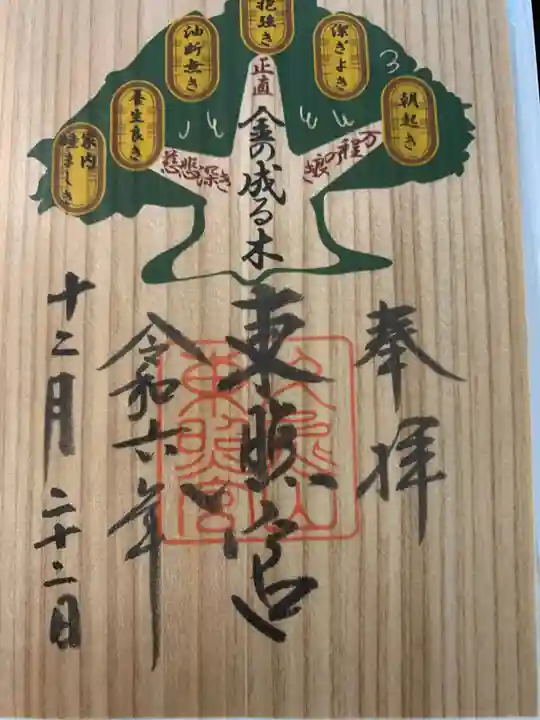 朝起き
潔ぎよき
抱強き
油断無き
養生良き
家内
睦ましき
万程の良き
正直
慈悲深き
金の成る木
奉拝
東照宮
令和六年
十二月二十二日